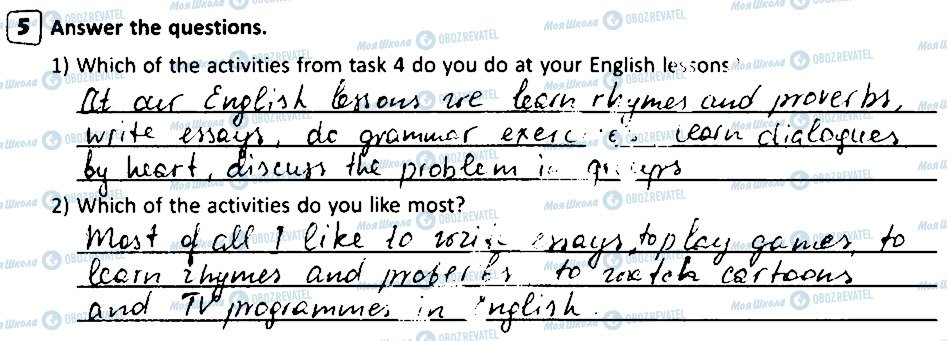 5 Answer the questions.
1) Which of the activities from task 4 do you do at your English lessons
At our English lessons we learn rhymes and proverbs,
write essays, do grammar exerc learn dialogues
by heart, discuss the problem in groups
2) Which of the activities do you like most?
Most of all I like to write essays, to play games, to
learn rhymes and proberbs to watch cartoons
and TV programmes in English.